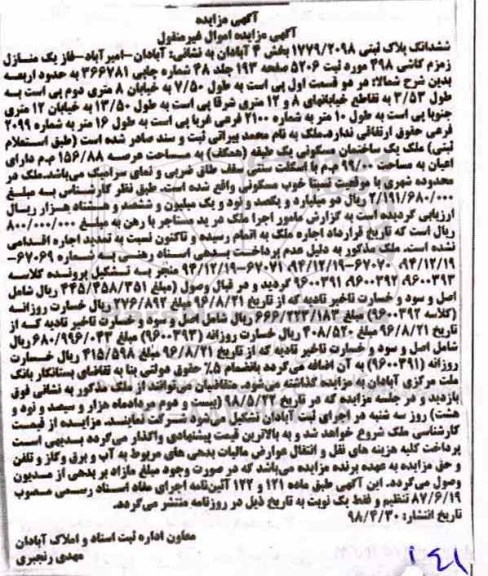 آگهی مزایده
آگهی مزایده اموال غیرمنقول
ششدانگ پلاک ثبتی ۱۷۷۹/۲۰۹۸ بخش ۴ آبادان به نشانی: آبادان-امیرآباد-فاز یک منازل
زمزم کاشی ۴۹۸ مورد ثبت ۵۲۰۶ صفحه ۱۹۳ جلد ۴۸ شماره چاپی ۳۶۶۷۸۱ به حدود اربعه
بدین شرح شمالا: در دو قسمت اول پی است به طول ۷/۵۰ به خیابان ۸ متری دوم پی است به
طول ۳/۵۳ به تقاطع خیابانهای ۸ و ۱۲ متری شرقا پی است به طول ۱۳/۵۰ به خیابان ۱۲ متری
جنوبا پی است به طول ۱۰ متر به شماره ۲۱۰۰ فرعی غربا پی است به طول ۱۶ متر به شماره ۲۰۹۹
فرعی حقوق ارتفاقی ندارد.ملک به نام محمد بیرانی ثبت و سند صادر شده است (طبق استعلام
ثبتی) ملک یک ساختمان مسکونی یک طبقه (همکف) به مساحت عرصه ۱۵۶/۸۸ م.م دارای
اعیان به مساحت ۹۹/۸۰ م.م با اسکلت سنتی سقف طاق ضربی و نمای سرامیک می‌باشد.ملک در
محدوده شهری با موقعیت نسبتا خوب مسکونی واقع شده است. طبق نظر کارشناس به مبلغ
۲/۱۹۱/۶۸۰/۰۰۰ ریال دو میلیارد و یکصد و نود و یک میلیون و ششصد و هشتاد هزار ریال
ارزیابی گردیده است به گزارش مامور اجرا ملک در ید مستاجر با رهن به مبلغ ۸۰۰/۰۰۰/۰۰۰
ریال است که تاریخ قرارداد اجاره ملک به اتمام رسیده و تاکنون نسبت به تمدید اجاره اقدامی
نشده است. ملک مذکور به دلیل عدم پرداخت بدهی اسناد رهنی به شماره ۶۷۰۶۹-
۹۴/۱۲/۱۹، ۶۷۰۷۰-۹۴/۱۲/۱۹، ۶۷۰۷۱-۹۴/۱۲/۱۹ منجر به تشکیل پرونده کلاسه
۹۶۰۰۳۹۳، ۹۶۰۰۳۹۲، ۹۶۰۰۳۹۱ گردید و در قبال وصول (مبلغ ۴۴۵/۴۵۸/۳۵۱ ریال شامل
اصل و سود و خسارت تاخیر تادیه که از تاریخ ۹۶/۸/۲۱ مبلغ ۲۷۶/۸۹۲ ریال خسارت روزانه
(کلاسه ۹۶۰۰۳۹۲) مبلغ ۶۶۶/۲۲۳/۱۸۳ ریال شامل اصل و سود و خسارت تاخیر تادیه که از
تاریخ ۹۶/۸/۲۱ مبلغ ۴۰۸/۵۲۰ ریال خسارت روزانه (۹۶۰۰۳۹۳) مبلغ ۶۸۰/۹۹۶/۰۴۳ ریال
شامل اصل و سود و خسارت تاخیر تادیه که از تاریخ ۹۶/۸/۲۱ مبلغ ۴۱۵/۵۹۸ ریال خسارت
روزانه (۹۶۰۰۳۹۱) به آن اضافه می‌گردد بانضمام ۵٪ حقوق دولتی بنا به تقاضای بستانکار بانک
ملت مرکزی آبادان به مزایده گذاشته می‌شود. متقاضیان می‌توانند از ملک مذکور به نشانی فوق
بازدید و در جلسه مزایده که در تاریخ ۹۸/۵/۲۲ (بیست و دوم مردادماه هزار و سیصد و نود و
هشت) روز سه شنبه در اجرای ثبت آبادان تشکیل می‌شود شرکت نمایند. مزایده از قیمت
کارشناسی ملک شروع خواهد شد و به بالاترین قیمت پیشنهادی واگذار می‌گردد بدیهی است
پرداخت کلیه هزینه های نقل و انتقال عوارض مالیات بدهی های مربوط به آب و برق وگاز و تلفن
و حق مزایده به عهده برنده مزایده می‌باشد که در صورت وجود مبلغ مازاد بر بدهی از مدیون
وصول می‌گردد. این آگهی طبق ماده ۱۲۱ و ۱۲۲ آئین‌نامه اجرای مفاد اسناد رسمی مصوب
۸۷/۶/۱۹ تنظیم و فقط یک نوبت به تاریخ ذیل در روزنامه منتشر می‌گردد.
تاریخ انتشار: ۹۸/۴/۳۰
معاون اداره ثبت اسناد و املاک آبادان
مهدی رنجبری
۱۴۱